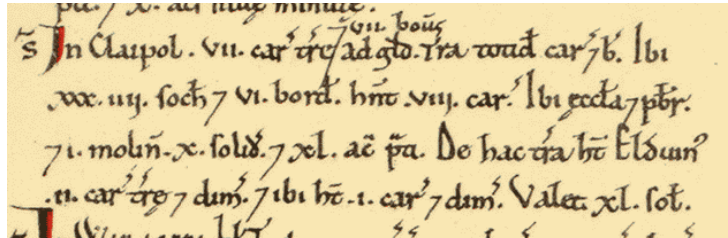 7 vii. bou᷒
S̃ In Claipol . vii. car᷒ tr̃e ad gld̃. T'ra totid̃ car᷒ 7 b᷒. Ibi
xxx. iiij. soch̃ 7 vi. bord̃. hñt .viii. car᷒. Ibi ęccła 7 pƀr.
7 i. molin̄. x. solid̃. 7 xl. ac̃ p̃ti. De hac t'ra ht̃ Elduin᷒
.ii. car᷒ tr̃e 7 dim̃. 7 ibi ht̃ .i. car᷒ 7 dim̃. Valet xl. soł.